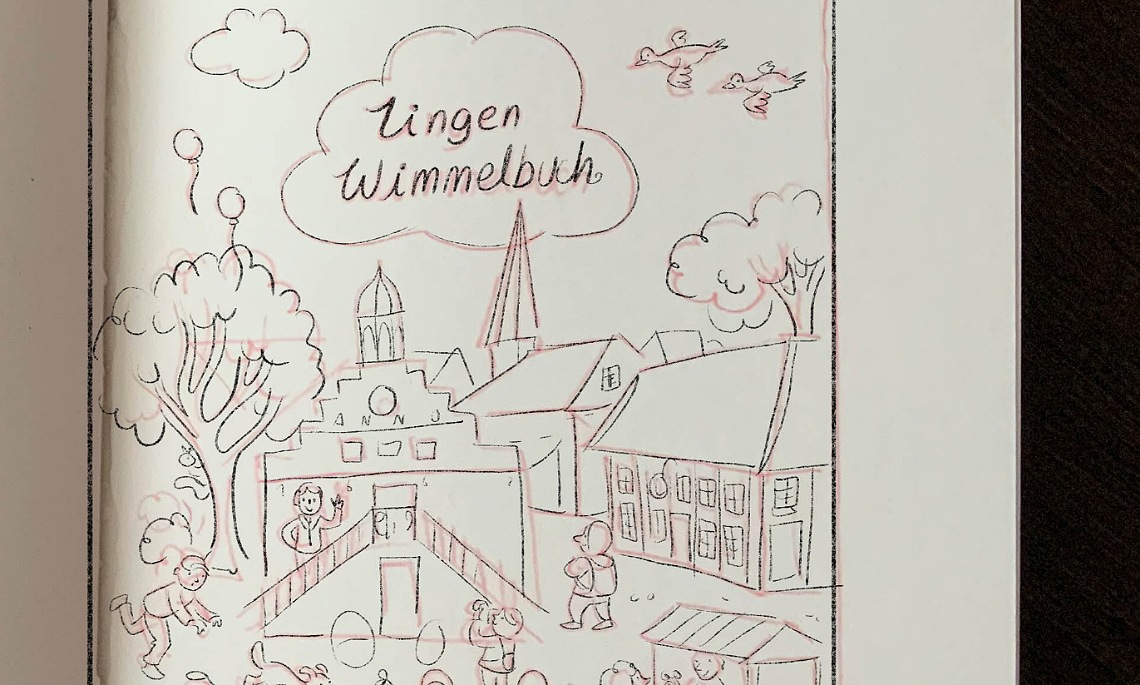 Lingen
Wimmelbuch